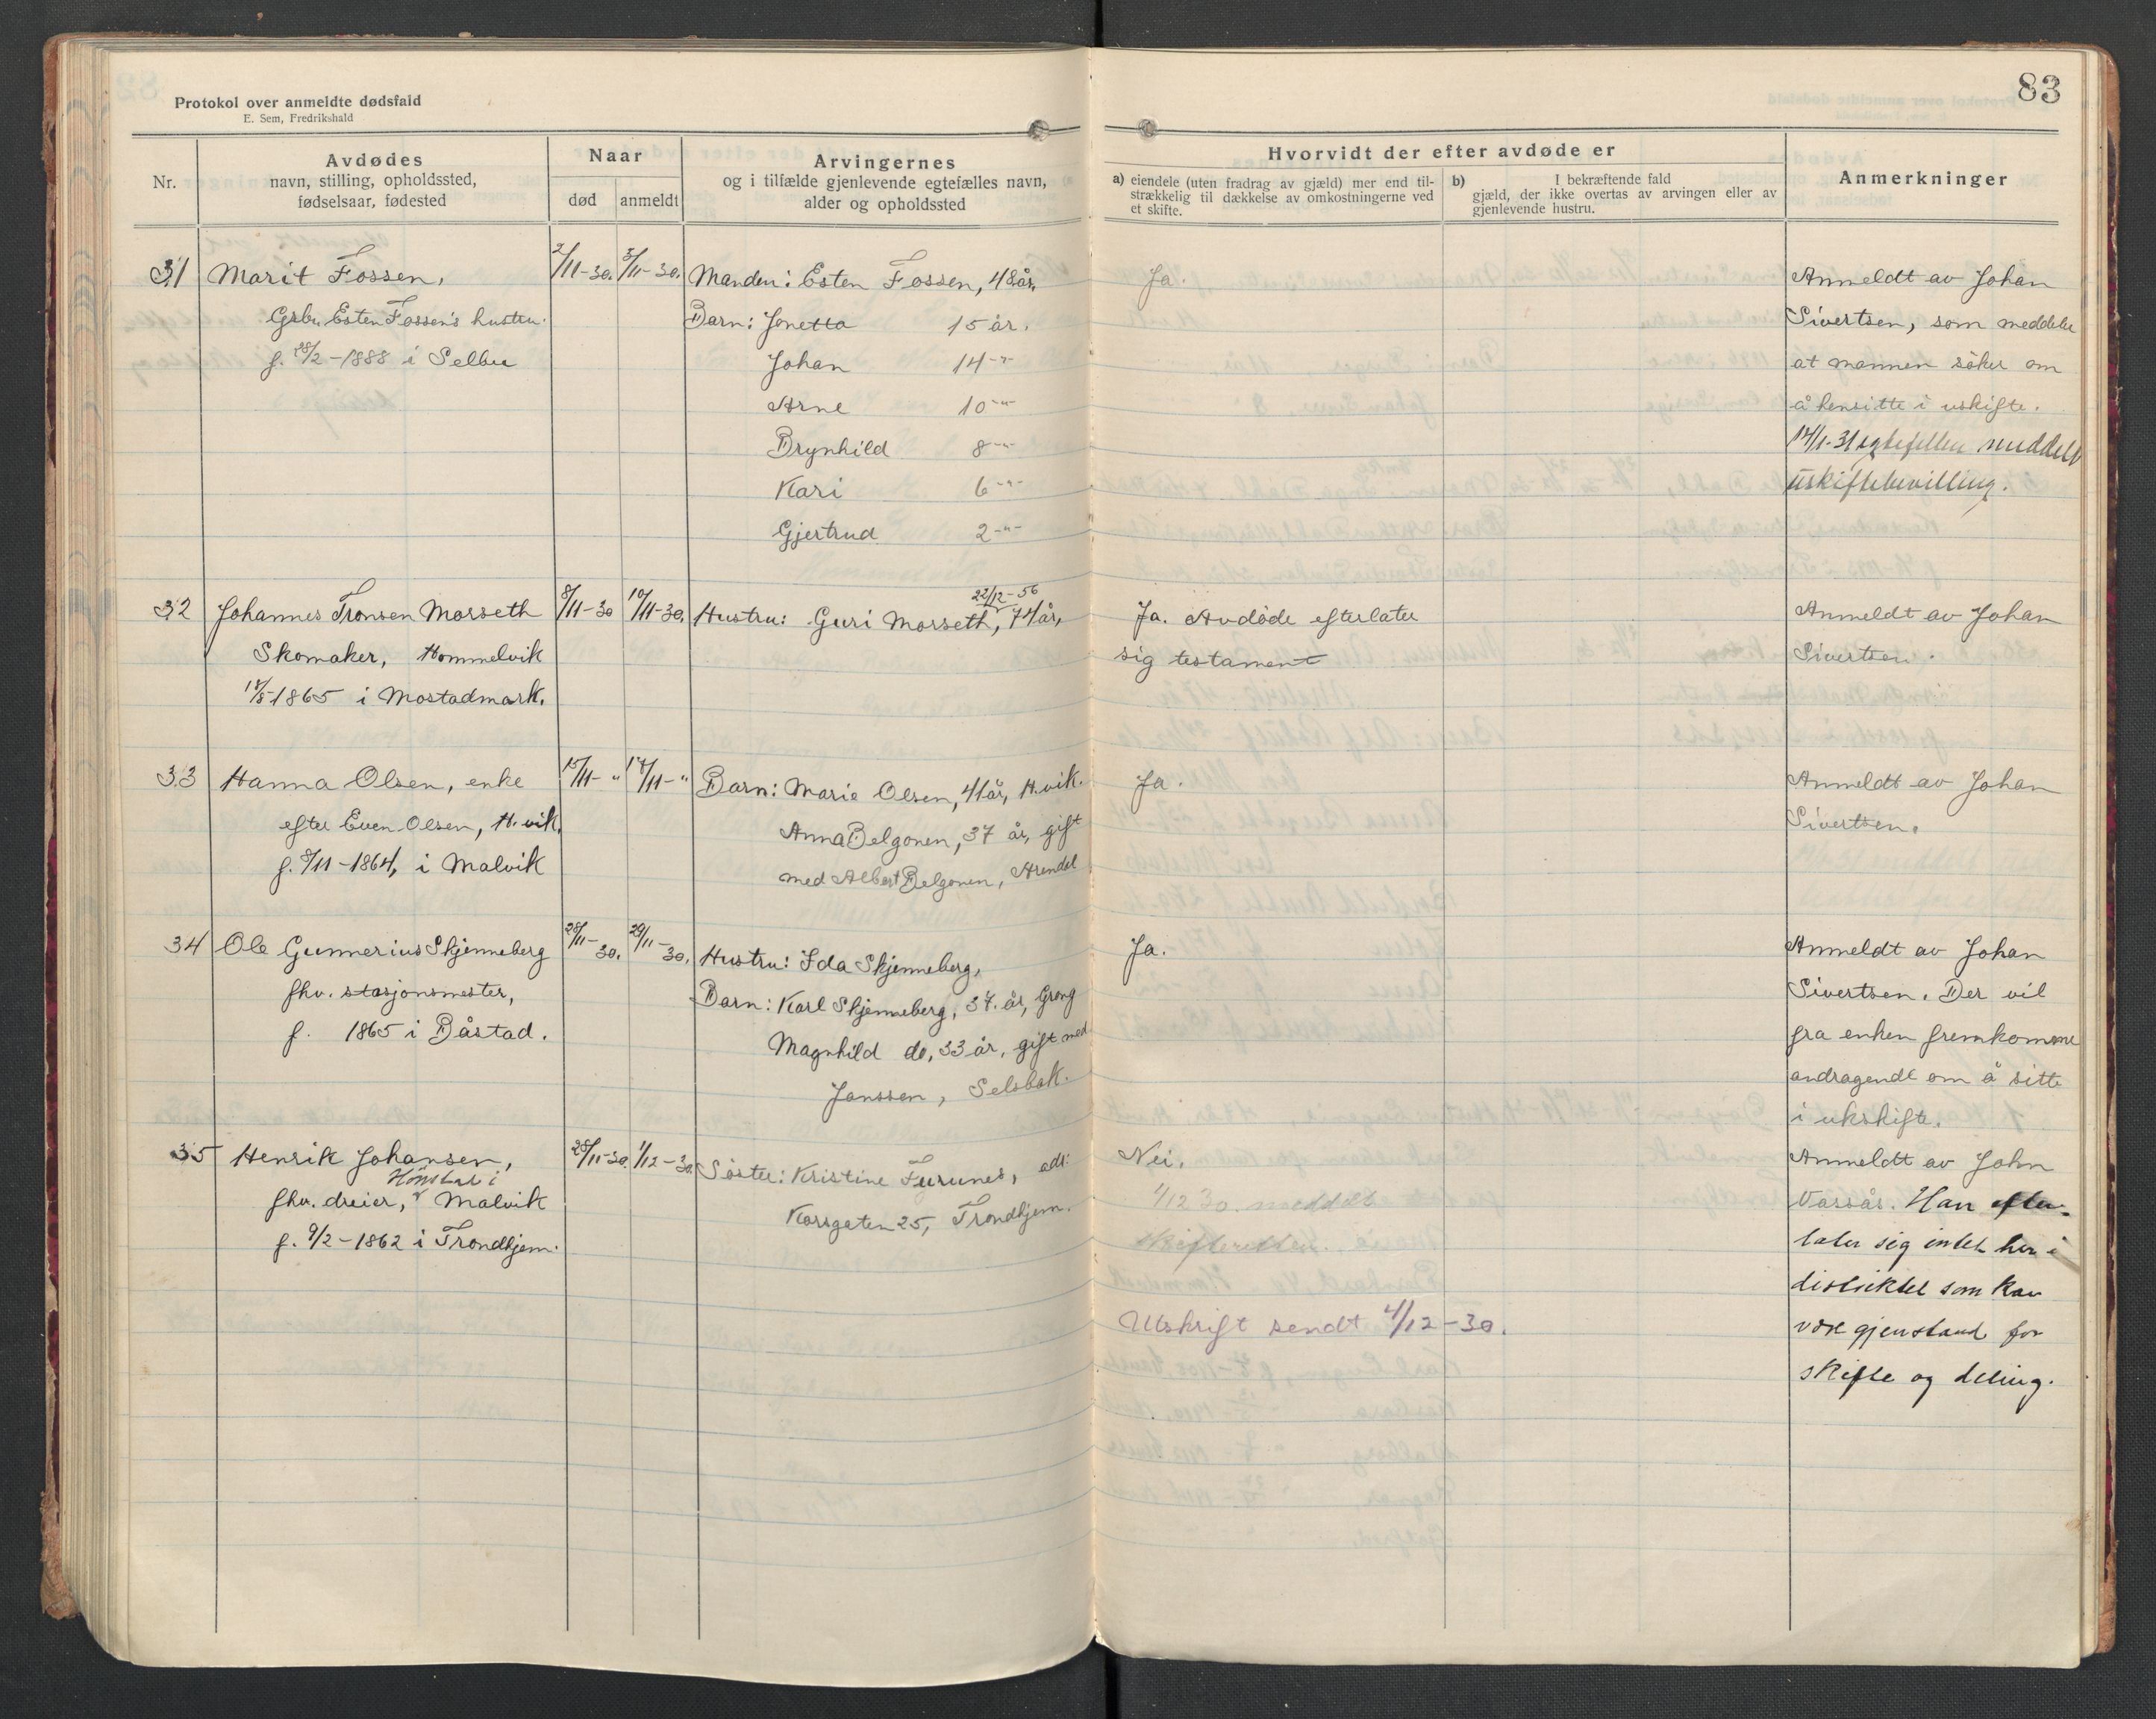 83
Protokol over anmeldte dødsfald
E. Sem, Fredrikshald
Nr.
Avdødes
navn, stilling, opholdssted,
fødselsaar, fødested
Naar
død
anmeldt
Arvingernes
og i tilfælde gjenlevende egtefælles navn,
alder og opholdssted
Hvorvidt der efter avdøde er
a) eiendele (uten fradrag av gjæld) mer end til-
strækkelig til dækkelse av omkostningerne ved
et skifte.
b) I bekræftende fald
gjæld, der ikke overtas av arvingen eller av
gjenlevende hustru.
Anmerkninger
31 Marit Fossen,
Grbr. Esten Fossen's hustru.
f. 28/2-1888 i Selbu
2/11-30. 3/11-30.
Manden: Esten Fossen, 48 år,
Barn: Jonetta 15 år.
Johan 14 -"-
Arne 10 -"-
Brynhild 8 -"-
Kari 6 -"-
Gjertrud 2 -"-
Ja.
Anmeldt av Johan
Sivertsen, som meddeler
at mannen söker om
å hensitte i uskifte.
14/1-31 egtefellen meddelt
uskiftebevilling.
32 Johannes Tronsen Morseth
Skomaker, Hommelvik
18/8-1865 i Mostadmark.
8/11-30 10/11-30.
22/12-56
Hustru: Guri Morseth, 74 år,
Ja. Avdöde efterlater
sig testament
Anmeldt av Johan
Sivertsen.
33 Hanna Olsen, enke
efter Even Olsen, H.vik,
f. 8/11-1864, i Malvik
15/11- " 17/11- "
Barn: Marie Olsen, 41 år, H.vik.
Anna Belgonen, 37 år, gift
med Albert Belgonen, Arendal
Ja.
Anmeldt av Johan
Sivertsen.
34 Ole Gunnerius Skjenneberg
fhv. stasjonsmester,
f. 1865 i Båstad.
28/11-30. 29/11-30.
Hustru: Ida Skjenneberg,
Barn: Karl Skjenneberg, 37. år, Grong
Magnhild do, 33 år, gift med
Janssen, Selsbak.
Ja.
Anmeldt av Johan
Sivertsen. Der vil
fra enken fremkomme
andragende om å sitte
i ukskifte.
35 Henrik Johansen,
Hönstad i
fhv. dreier, Malvik
f. 9/2-1862 i Trondhjem.
28/11-30. 1/12-30.
Söster: Kristine Furunes, adr:
Korsgaten 25, Trondhjem.
Nei.
4/12 30. meddelt
skifteretten.
Utskrift sendt 4/12-30.
Anmeldt av John
Varsås. Han efter-
later sig intet her i
distriktet som kan
være gjenstand for
skifte og deling.